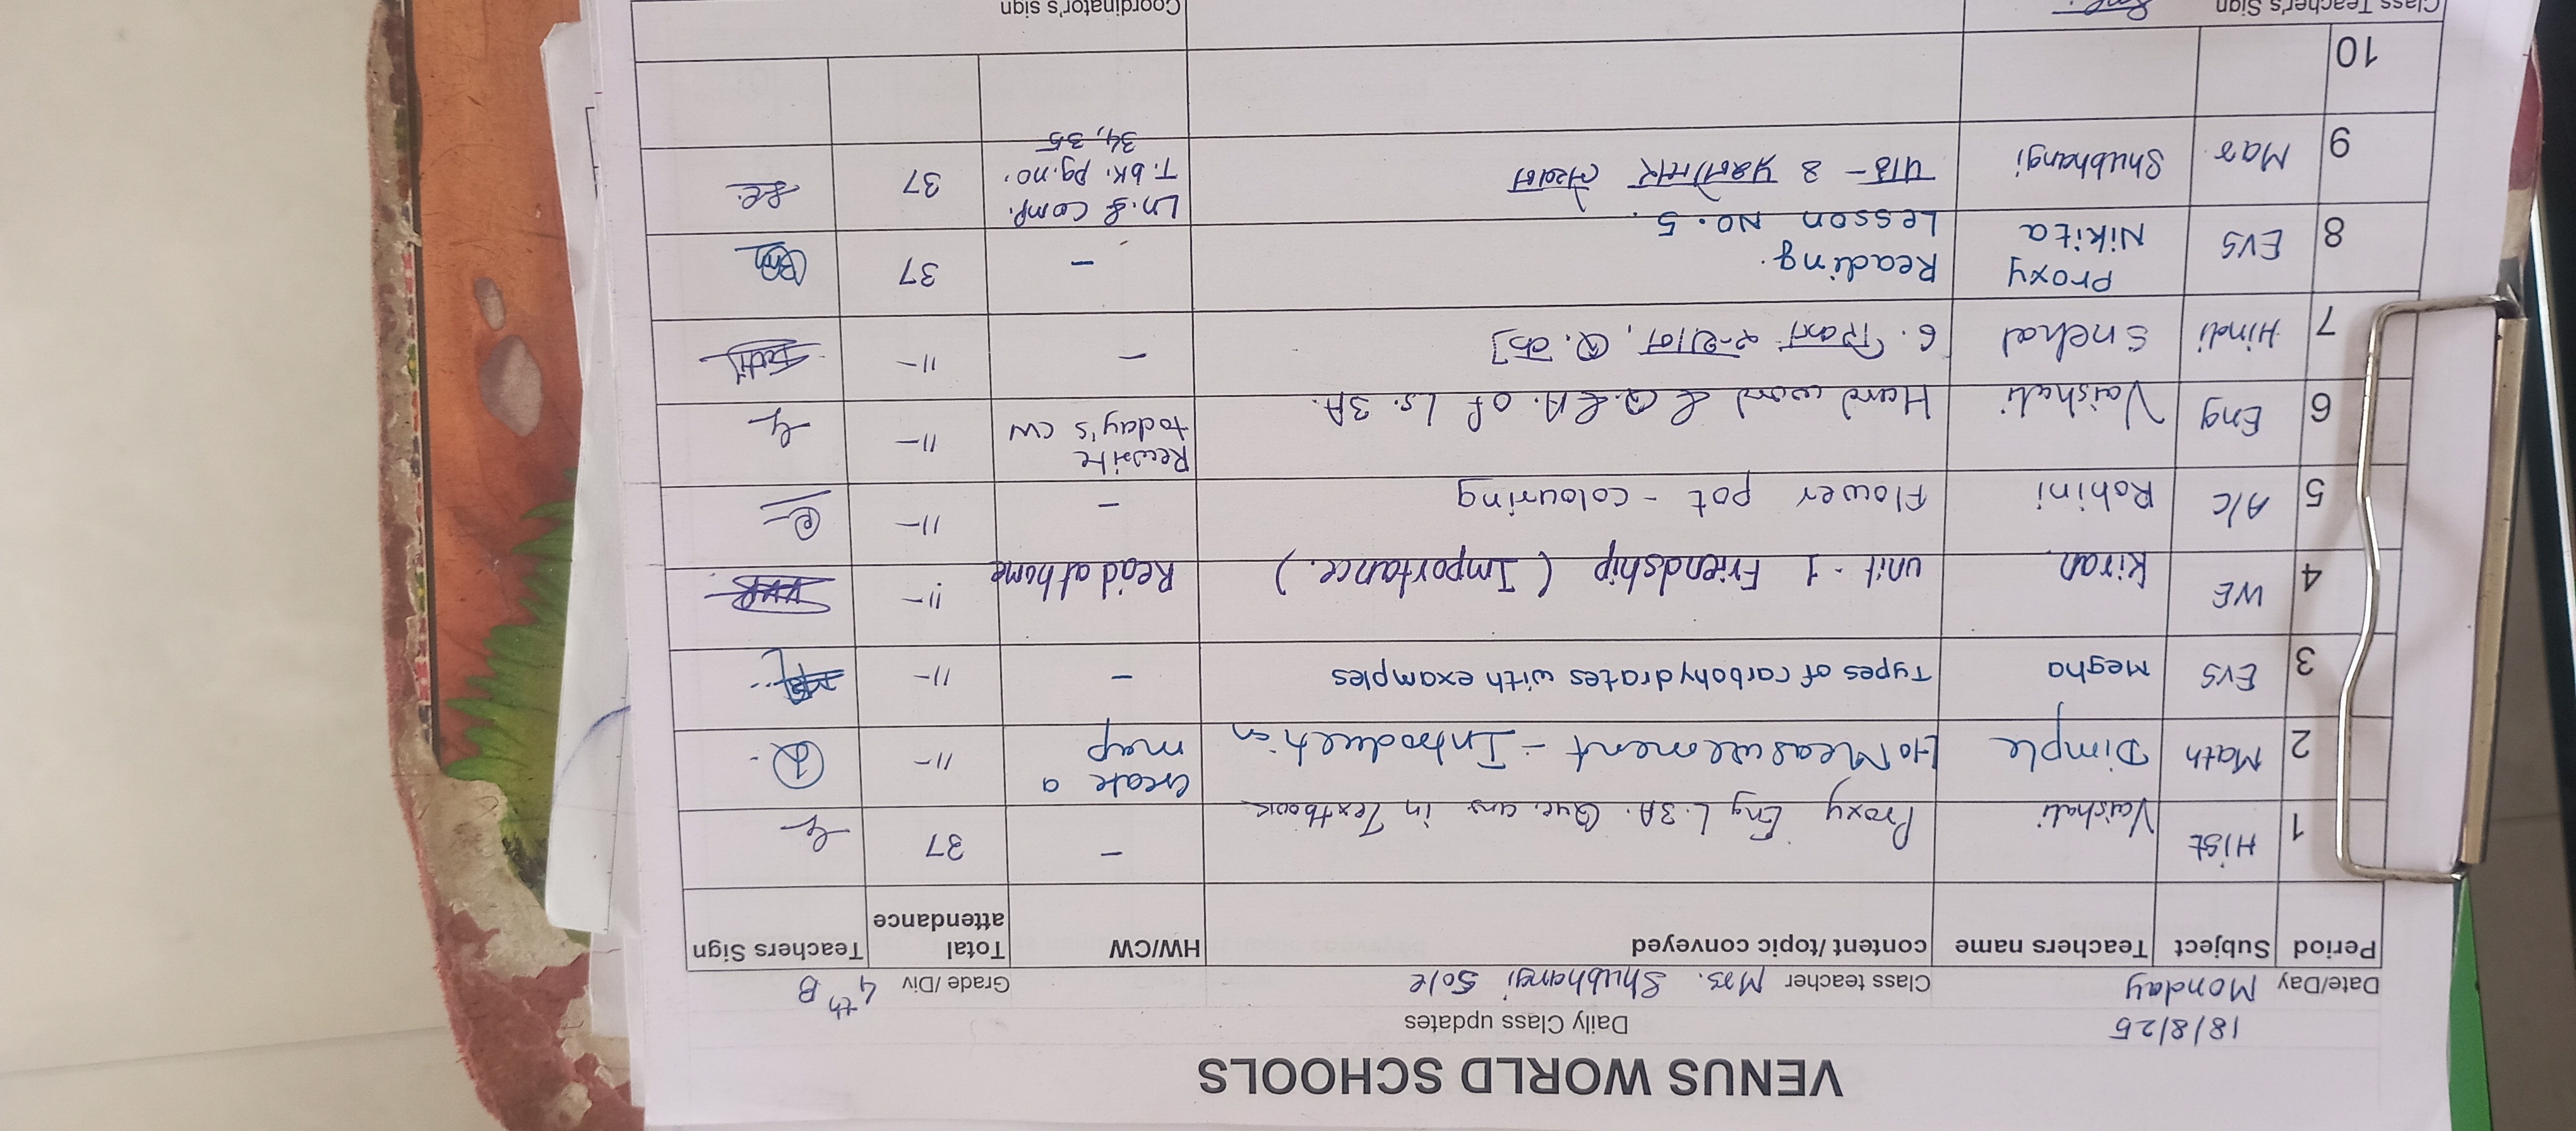 VENUS WORLD SCHOOLS
Daily Class updates
18/8/25
Date/Day Monday Class teacher Mrs. Shubhangi Sole Grade/Div 4th B
Period Subject Teachers name content/topic conveyed HW/CW Total attendance Teachers Sign
1 Hist Vaishali Proxy Eng L.3A. Que. ans in Textbook - 37
2 Math Dimple L10 Measurement - Introduction Create a map -11-
3 EVS Megha Types of carbohydrates with examples - -11-
4 WE Kiran unit - 1 Friendship (Importance.) Read at home -11-
5 A/C Rohini Flower pot - colouring - -11-
6 Eng Vaishali Hard word & Q.&A. of Ls. 3A. Rewrite today's CW -11-
7 Hindi Snehal 6. Q. - -11-
8 EVS Proxy Nikita Reading. Lesson No. 5. - 37
9 Mar Shubhangi पाठ - Ln. & comp. T.bk. pg.no. 34, 35 37
10
Class Teacher's Sign Coordinator's sign